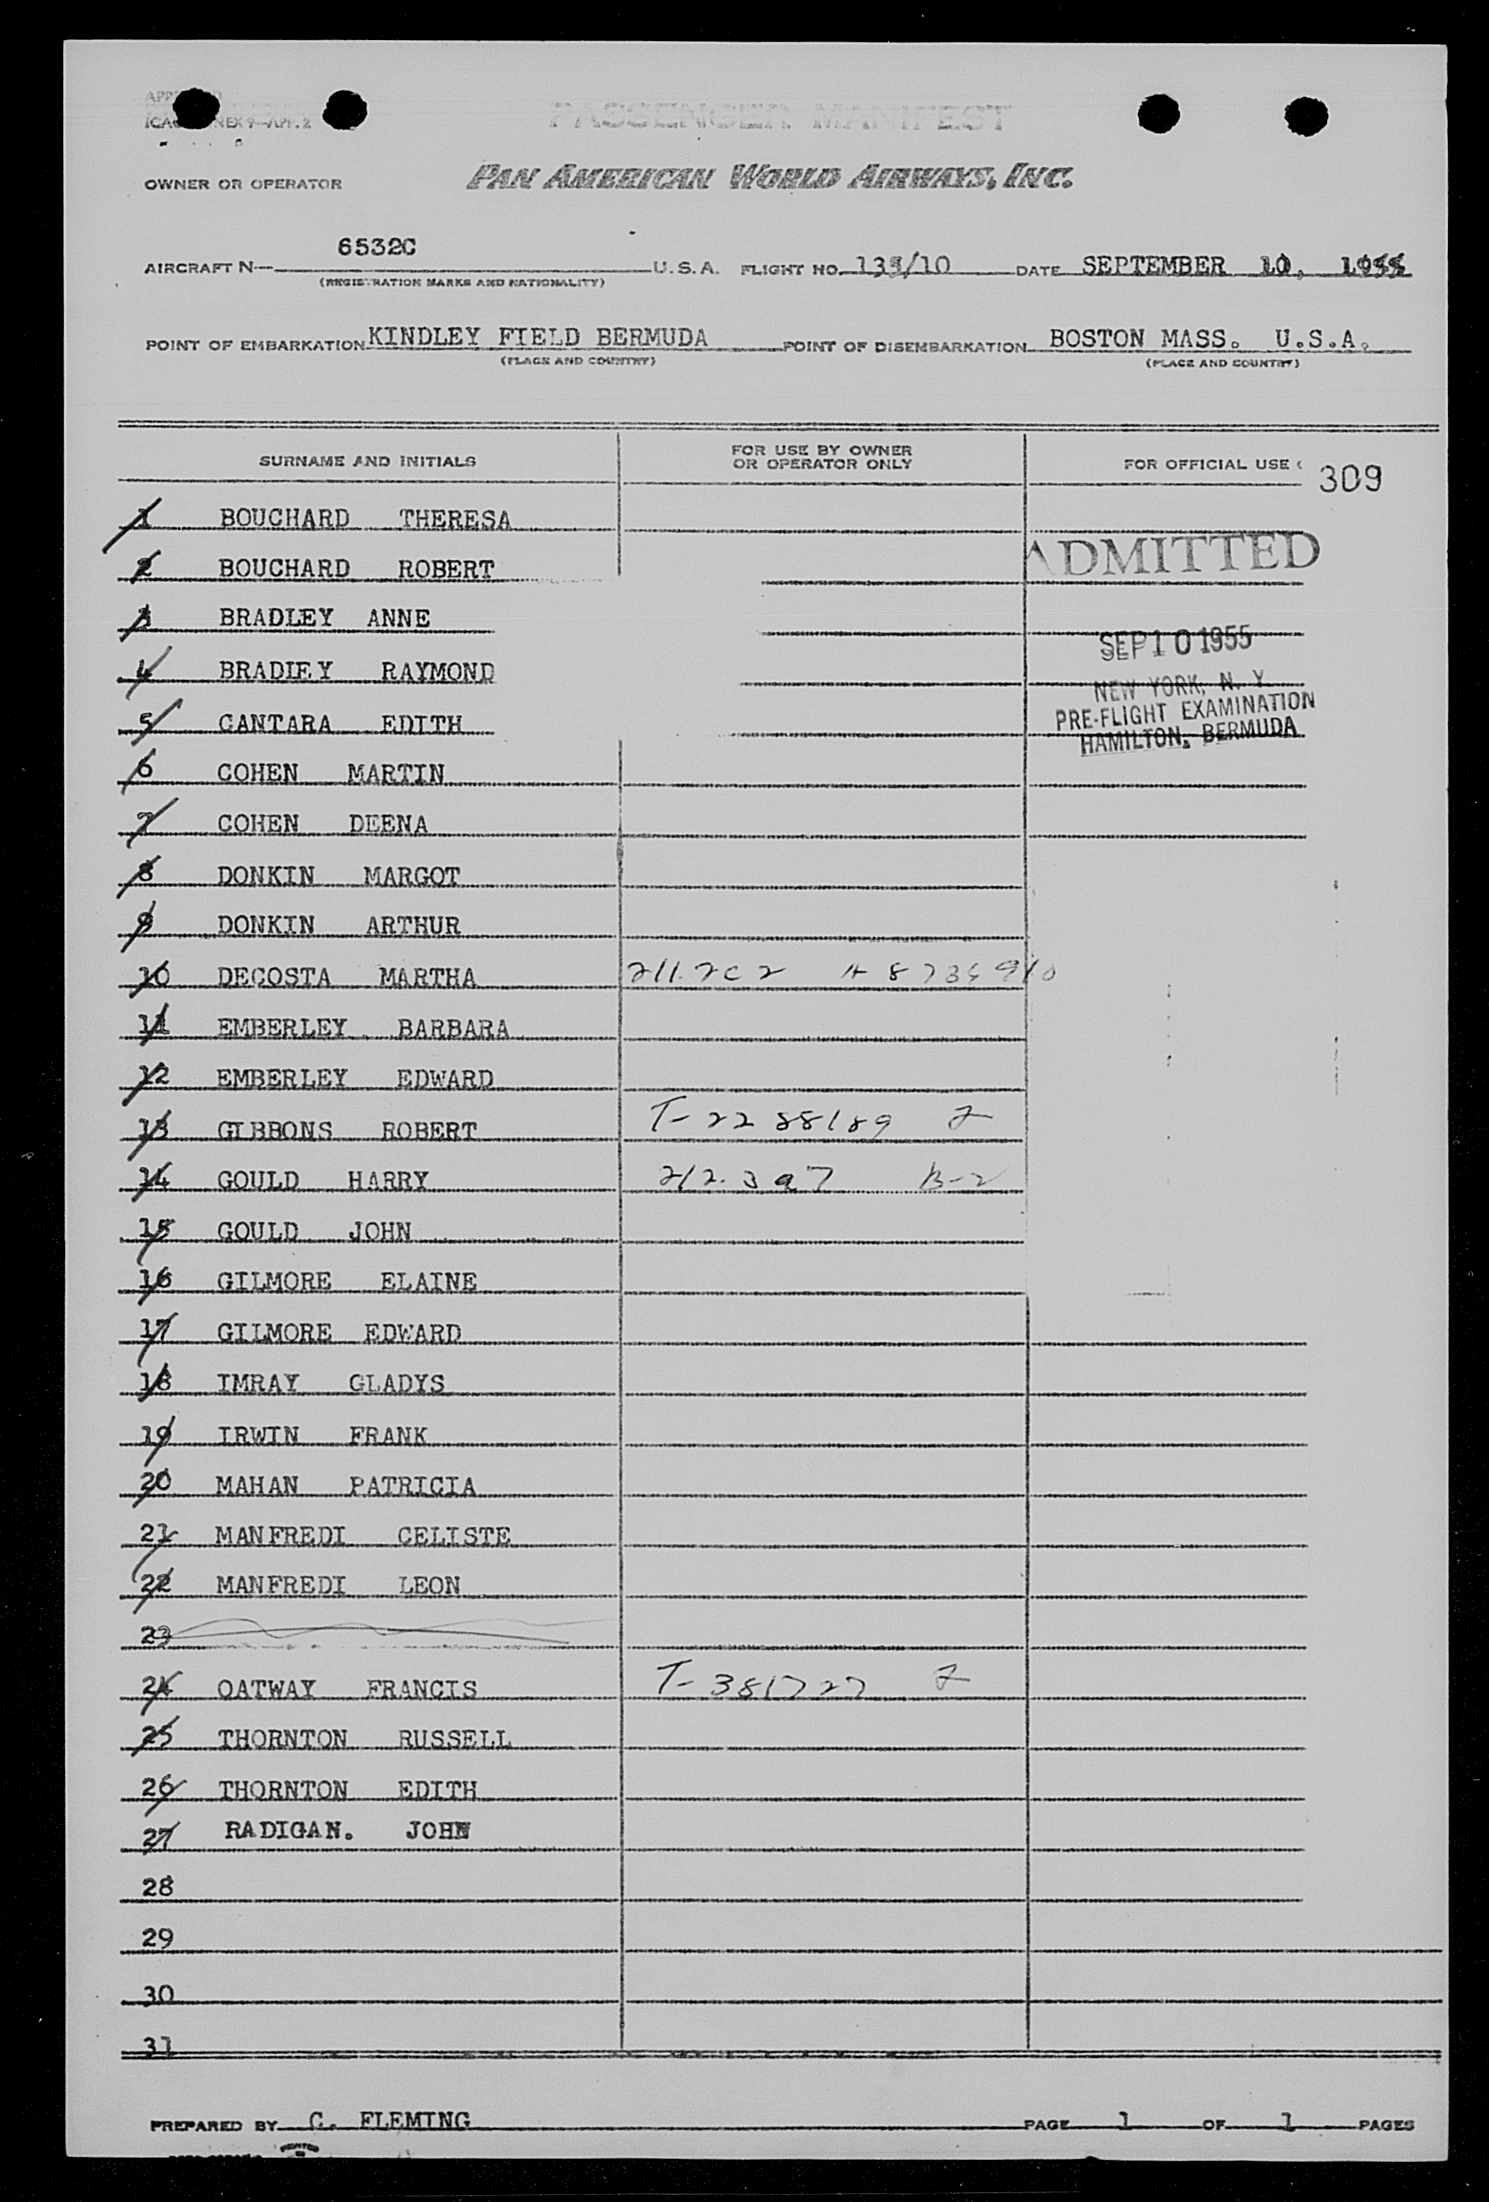 PASSENGER MANIFEST
OWNER OR OPERATOR PAN AMERICAN WORLD AIRWAYS, INC.
6532C
AIRCRAFT N— U.S.A. FLIGHT NO. /10 DATE SEPTEMBER 10, 1955
(REGISTRATION MARKS AND NATIONALITY)
POINT OF EMBARKATION KINDLEY FIELD BERMUDA POINT OF DISEMBARKATION BOSTON MASS. U.S.A.
(PLACE AND COUNTRY) (PLACE AND COUNTRY)
SURNAME AND INITIALS FOR USE BY OWNER OR OPERATOR ONLY FOR OFFICIAL USE 309
1 BOUCHARD THERESA
ADMITTED
2 BOUCHARD ROBERT
3 BRADLEY ANNE
SEP 10 1955
4 BRADLEY RAYMOND
NEW YORK, N. Y
PRE-FLIGHT EXAMINATION
5 CANTARA EDITH
HAMILTON, BERMUDA
6 COHEN MARTIN
7 COHEN DEENA
8 DONKIN MARGOT
9 DONKIN ARTHUR
10 DECOSTA MARTHA
11 EMBERLEY BARBARA
12 EMBERLEY EDWARD
13 GIBBONS ROBERT T-2288189 2
14 GOULD HARRY 212.397 B-2
15 GOULD JOHN
16 GILMORE ELAINE
17 GILMORE EDWARD
18 IMRAY GLADYS
19 IRWIN FRANK
20 MAHAN PATRICIA
21 MANFREDI CELISTE
22 MANFREDI LEON
23
24 OATWAY FRANCIS T-381727 2
25 THORNTON RUSSELL
26 THORNTON EDITH
27 RADIGAN. JOHN
28
29
30
31
PREPARED BY C. FLEMING PAGE 1 OF 1 PAGES